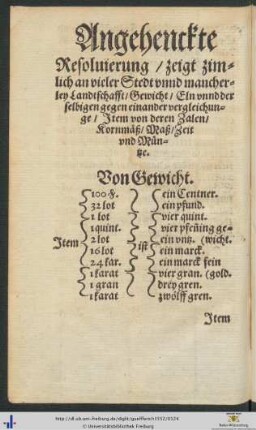 Angehenckte
Resoluierung / zeigt zim-
lich an vieler Stedt vnnd mancher-
ley Landtschafft / Gewicht / Eln vnnd der
selbigen gegen einander vergleichun-
ge / Item von deren Zalen /
Kornmäß / Maß / Zeit
vnd Mün-
tze.
Von Gewicht.
100 ℔. ein Centner.
32 lot ein pfund.
1 lot vier quint.
1 quint. vier pfening ge-
Item 2 lot ist ein vntz. (wicht.
16 lot ein marck.
24 kar. ein marck fein
1 karat vier gran. (gold.
1 gran drey gren.
1 karat zwölff gren.
Item
© Universitätsbibliothek Freiburg
Baden-Württemberg